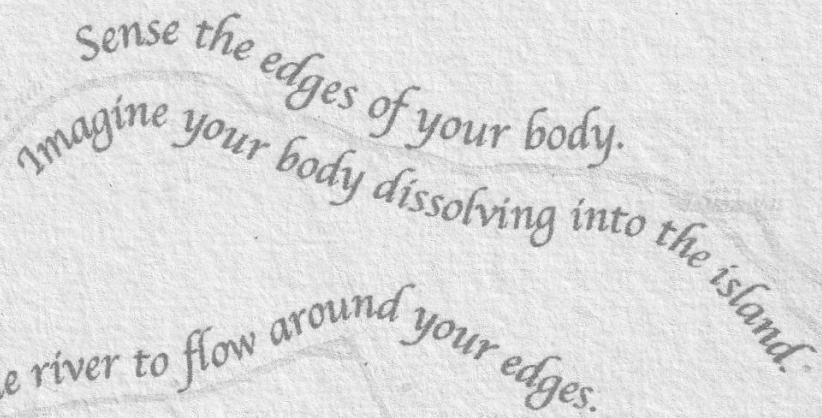 Sense the edges of your body.
Imagine your body dissolving into the island.
river to flow around your edges.